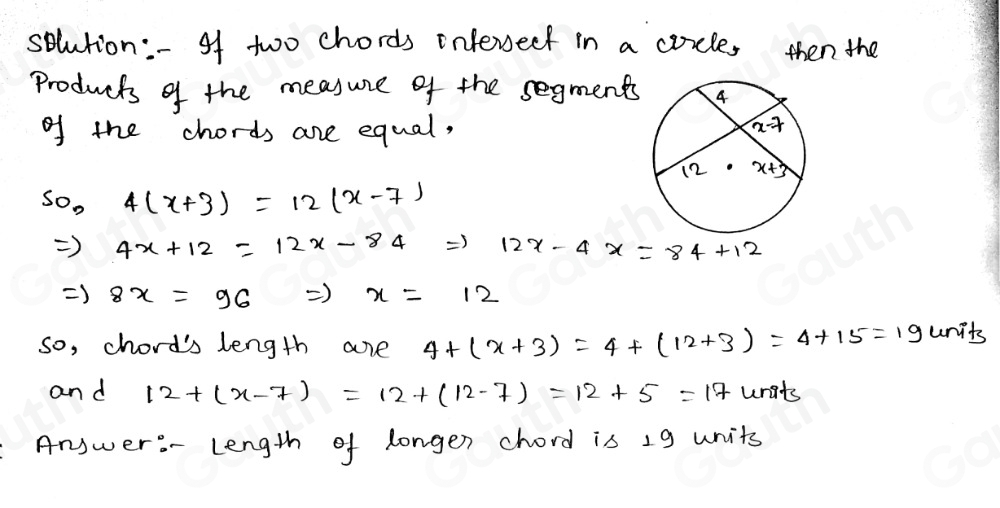 Solution:- If two chords intersect in a circle, then the
Products of the measure of the segments
of the chords are equal.
4
x-7
12
x+3
So, 4(x+3) = 12(x-7)
=> 4x+12 = 12x-84 => 12x-4x = 84+12
=> 8x = 96 => x = 12
So, chord's length are 4+(x+3) = 4+(12+3) = 4+15 = 19 units
and 12+(x-7) = 12+(12-7) = 12+5 = 17 units
Answer:- Length of longer chord is 19 units
Gauth